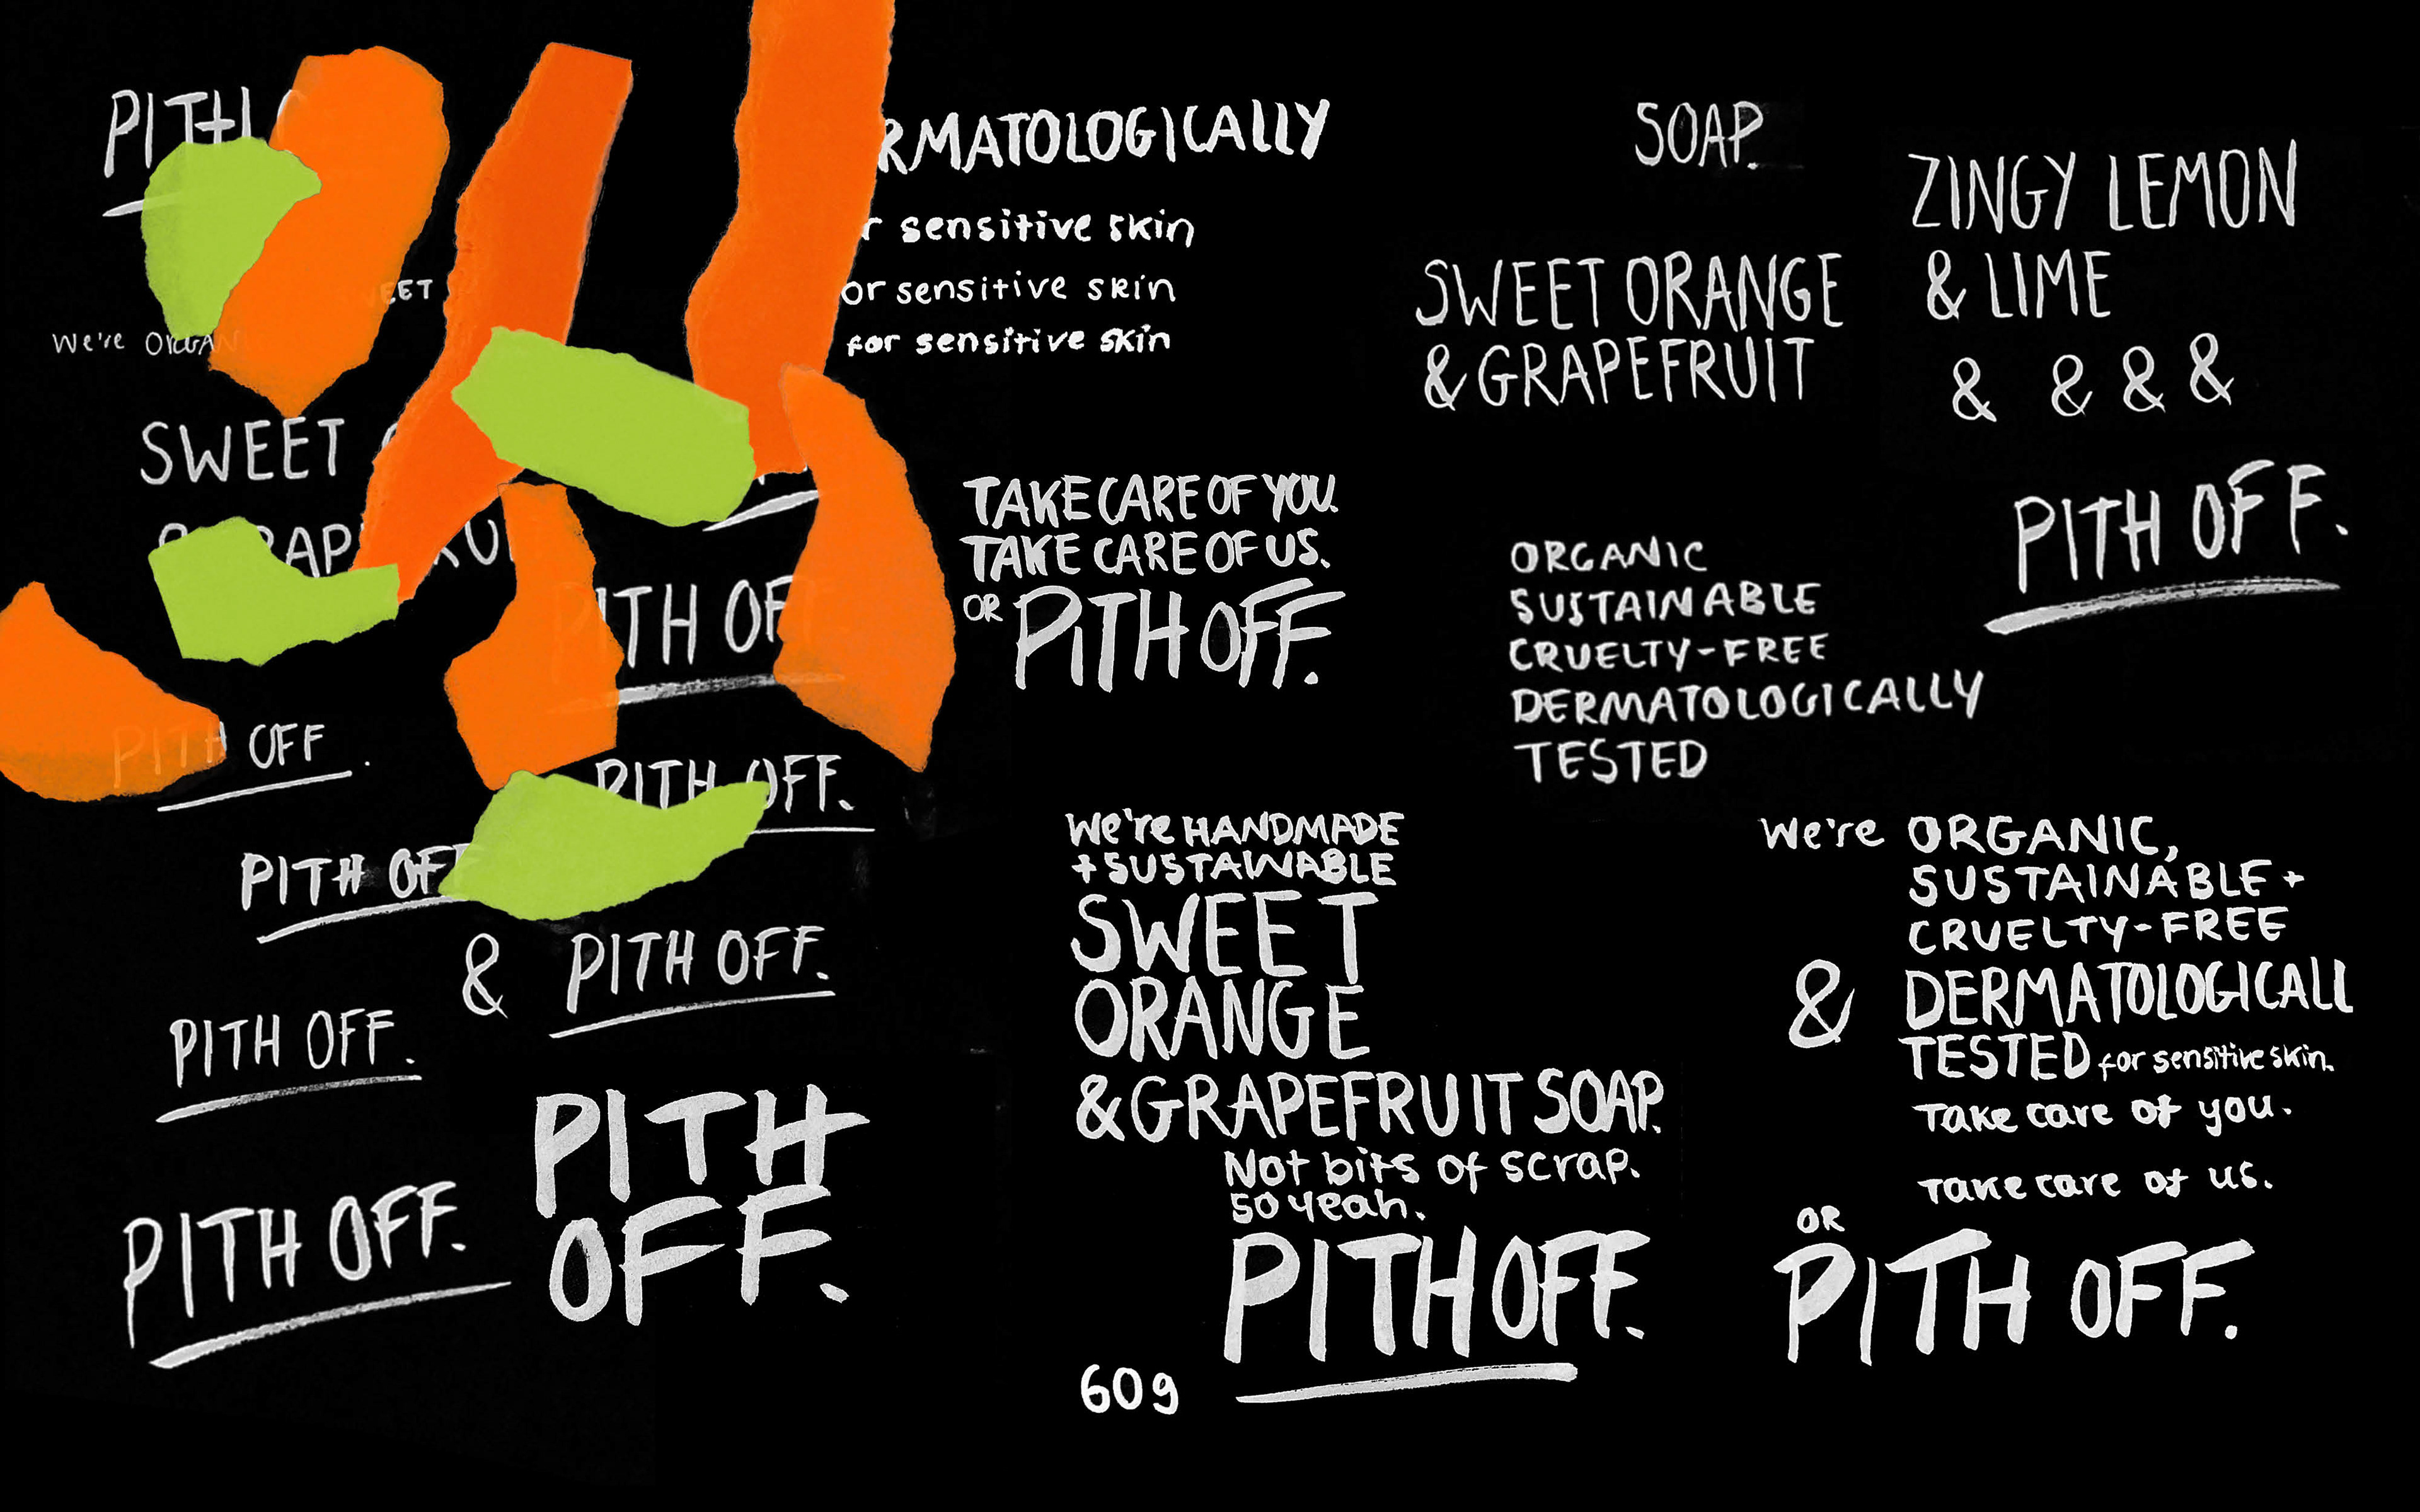 PITH
EET
We're ORGAN
SWEET
RAP RU
ITH OF
PITH OFF.
PITH OFF.
PITH OF
& PITH OFF.
PITH OFF.
PITH OFF.
PITH
OFF.
RMATOLOGICALLY
r sensitive skin
or sensitive skin
for sensitive skin
TAKE CARE OF YOU.
TAKE CARE OF US.
OR PITH OFF.
SOAP.
SWEET ORANGE
& GRAPEFRUIT
ZINGY LEMON
& LIME
& & & &
PITH OFF.
ORGANIC
SUSTAINABLE
CRUELTY-FREE
DERMATOLOGICALLY
TESTED
We're HANDMADE
+ SUSTAINABLE
SWEET
ORANGE
& GRAPEFRUIT SOAP.
Not bits of scrap.
so yeah.
PITH OFF.
60g
We're ORGANIC,
SUSTAINABLE +
CRUELTY-FREE
& DERMATOLOGICALL
TESTED for sensitive skin.
Take care of you.
Take care of us.
OR
PITH OFF.